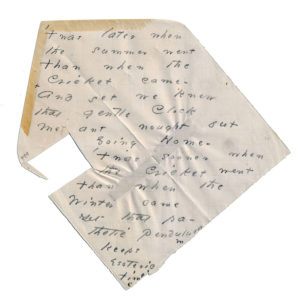 'Twas later when
the summer went
than when the
Cricket came -
And yet we knew
that gentle Clock
meant nought but
Going Home -
'Twas sooner when
the Cricket went
than when the
Winter came
yet that pa-
thetic Pendulum
keeps
Esoteric
Time